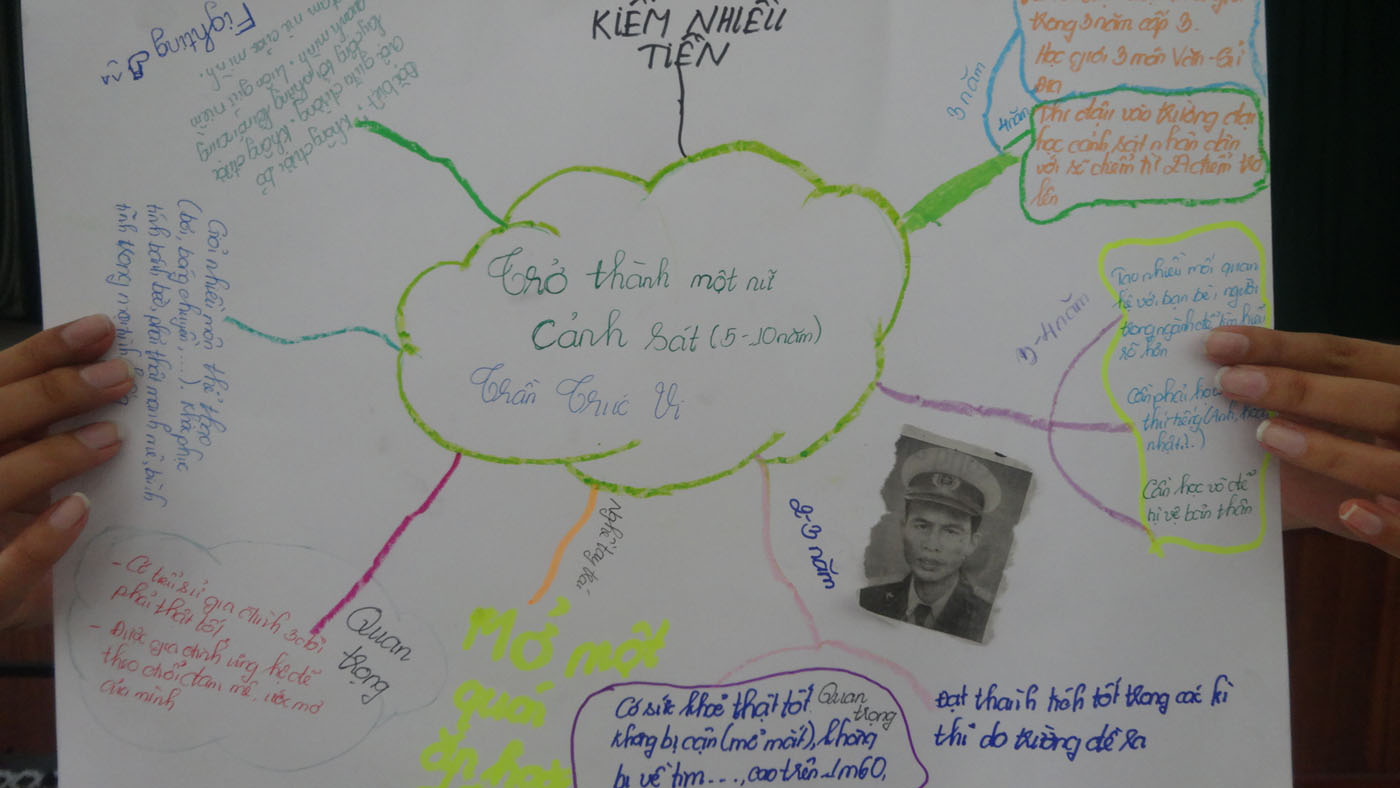 KIẾM NHIỀU
TIỀN
Fighting
^^
đam mê của mình.
quanh mình. Luôn giữ niềm
Đặc biệt, không chùi bỏ
giữa đường, không được
Giỏi nhiều môn thể thao
(bơi, bóng chuyền...). Khắc phục
tính bánh bèo, phải thật mạnh mẽ, bình
tĩnh trong mọi tình
3 năm
trong 3 năm cấp 3.
Học giỏi 3 môn Văn-Sử
Địa
4 năm
Thi đậu vào trường đại
học cảnh sát nhân dân
với số điểm từ 24 điểm trở
lên
Trở thành một nữ
Cảnh sát (5-10 năm)
Trần Trúc Vi
3-4 năm
Tạo nhiều mối quan
hệ với bạn bè, người
trong ngành để tìm hiểu
rõ hơn
Cần phải học
thứ tiếng (Anh,
nhật...)
Cần học võ để
tự vệ bản thân
Quan
trọng
- Có tiểu sử gia đình 3 đời
phải thật tốt
- Được gia đình ủng hộ để
theo đuổi đam mê, ước mơ
của mình
Nghề tay trái
Mở một
quán
2-3 năm
Có sức khoẻ thật tốt Quan
trọng
không bị cận (mổ mắt), không
bị về tim..., cao trên 1m60,
Đạt thành tích tốt trong các kì
thi do trường đề ra